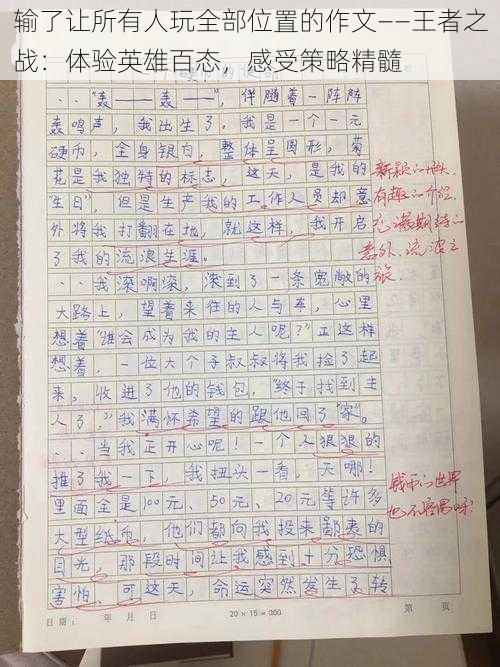 输了让所有人玩全部位置的作文——王者之
战：体验英雄百态，感受策略精髓
“轰——轰——”，伴随着一阵阵
轰鸣声，我出生了。我是一个一元
硬币，全身银白，整体呈圆形，菊
花是我独特的标志，这天，是我的
“生日”，但是生产我的工作人员却意
外将我打翻在地，就这样，我开启
了我的流浪生涯。
我滚啊滚，滚到了一条宽敞的
大路上，望着来往的人与车，心里
想着“谁会成为我的主人呢？”正这样
想着，一位大个子叔叔将我捡了起
来，收进了他的钱包，“终于找到主
人了，”我满怀希望的跟他回了“家”。
当我正开心呢！一个人狠狠的
推了我一下，我扭头一看，天哪！
里面全是100元、50元、20元等许多
大型纸币，他们都向我投来鄙夷的
目光，那段时间让我感到十分恐惧
害怕、可这天，命运突然发生了转
新颖的
有趣的介绍，
充满期待的
意外、流浪之
旅。
钱币的世界
也不
日期： 年 月 日
20×15=300
第 页